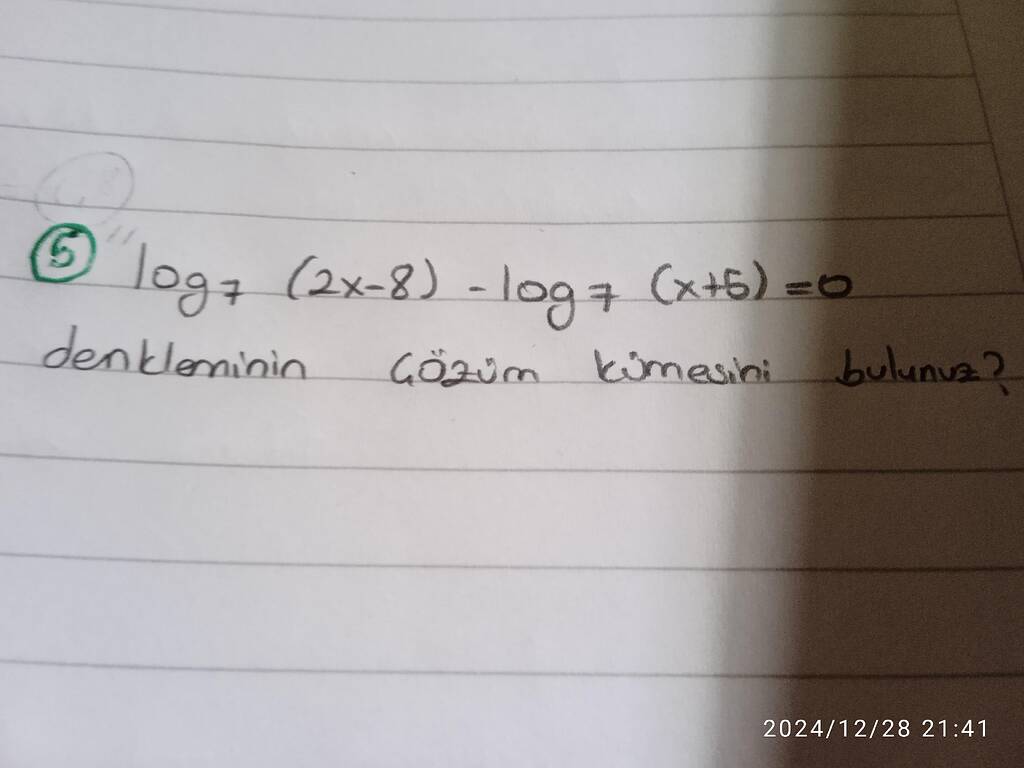 5 log7 (2x-8) - log7 (x+5) = 0
denkleminin çözüm kümesini bulunuz?
2024/12/28 21:41